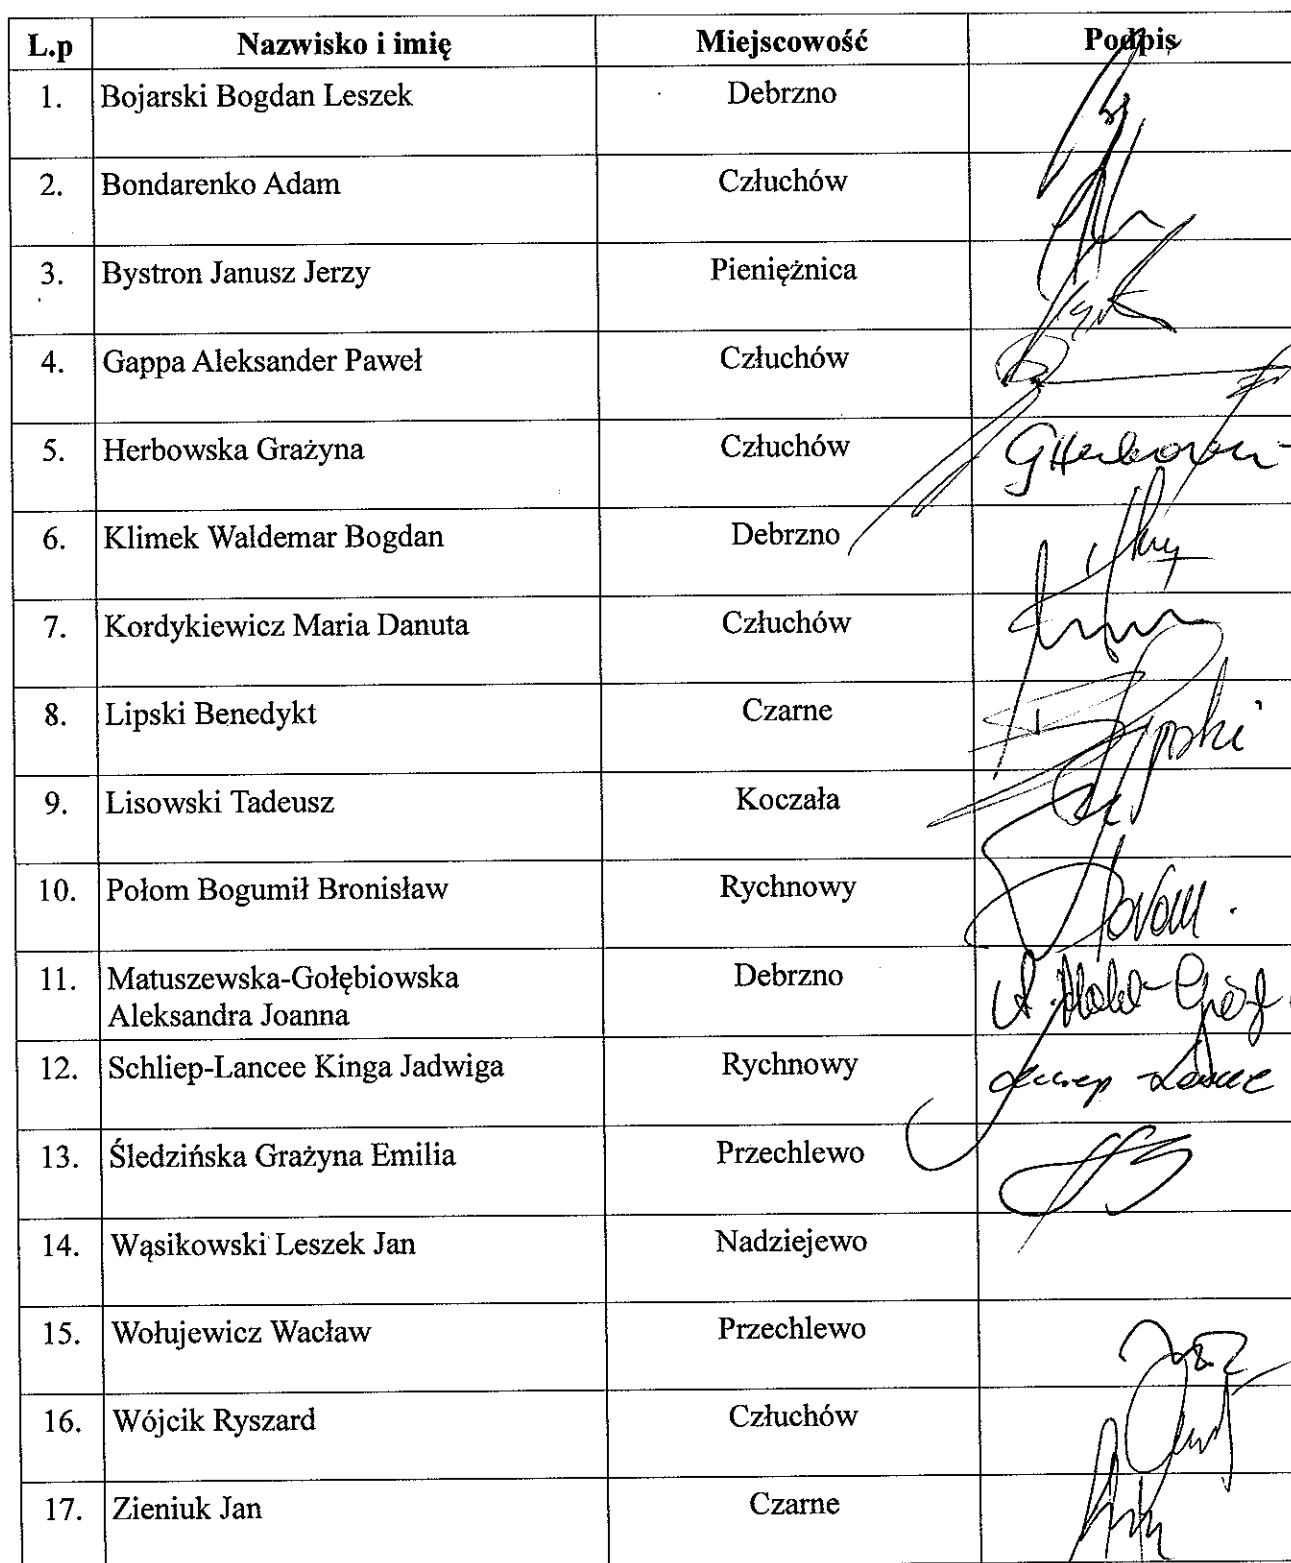 L.p Nazwisko i imię Miejscowość Podpis
1. Bojarski Bogdan Leszek Debrzno
2. Bondarenko Adam Człuchów
3. Bystron Janusz Jerzy Pieniężnica
4. Gappa Aleksander Paweł Człuchów
5. Herbowska Grażyna Człuchów
6. Klimek Waldemar Bogdan Debrzno
7. Kordykiewicz Maria Danuta Człuchów
8. Lipski Benedykt Czarne
9. Lisowski Tadeusz Koczała
10. Połom Bogumił Bronisław Rychnowy
11. Matuszewska-Gołębiowska Debrzno
Aleksandra Joanna
12. Schliep-Lancee Kinga Jadwiga Rychnowy
13. Śledzińska Grażyna Emilia Przechlewo
14. Wąsikowski Leszek Jan Nadziejewo
15. Wołujewicz Wacław Przechlewo
16. Wójcik Ryszard Człuchów
17. Zieniuk Jan Czarne